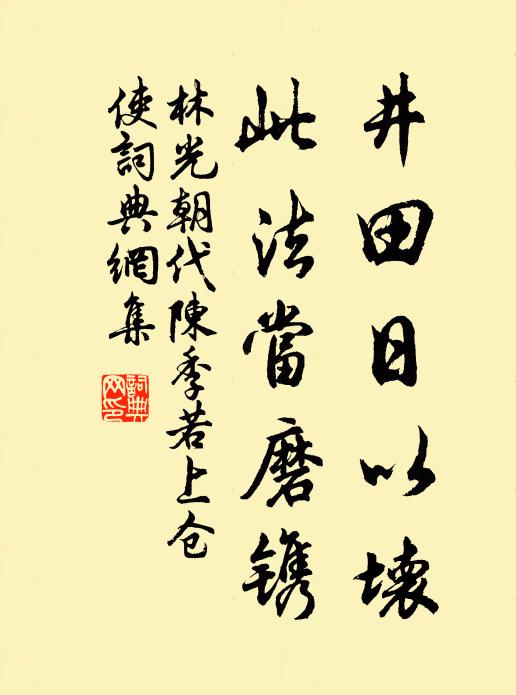 井田日以壞
此法當磨鐫
林光朝代陳季若上仓
使詞典網集
詞典
网印